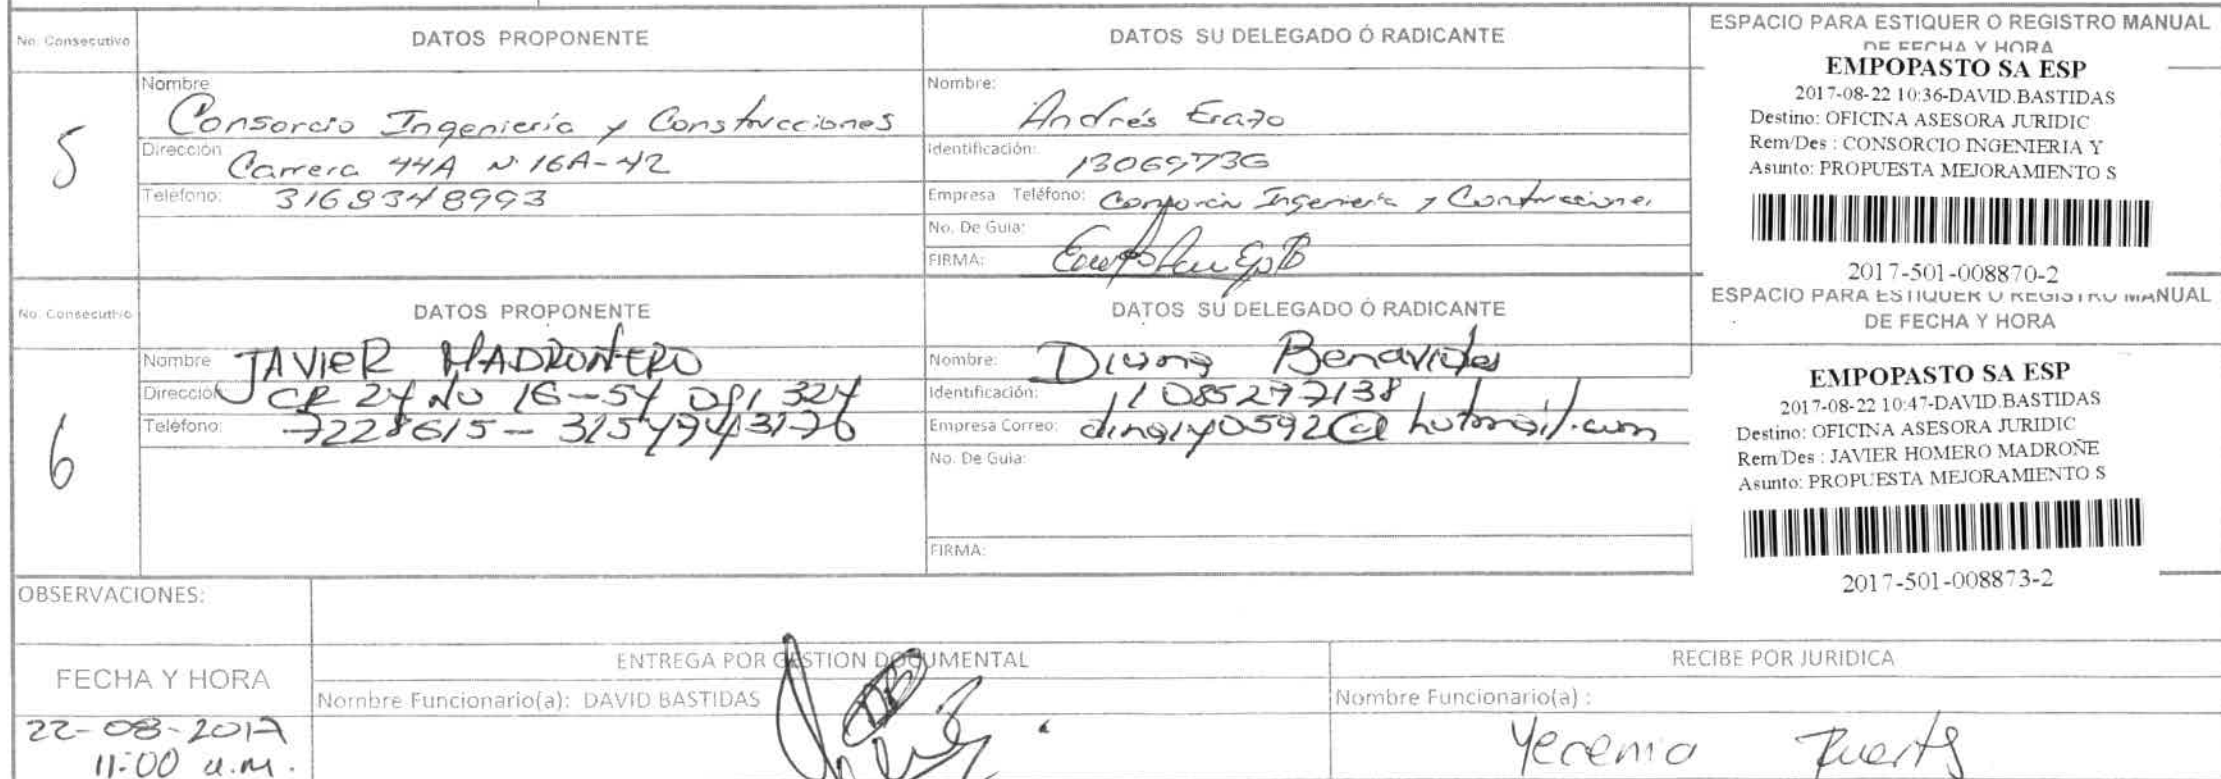 No. Consecutivo DATOS PROPONENTE DATOS SU DELEGADO Ó RADICANTE ESPACIO PARA ESTIQUER O REGISTRO MANUAL
DE FECHA Y HORA
5
Nombre
Consorcio Ingeniería y Construcciones
Dirección Carrera 44A N 16A-42
Teléfono: 3168348993
Nombre: Andrés Erazo
Identificación: 13069736
Empresa Teléfono: Ingeniería y
No. De Guia:
FIRMA:
EMPOPASTO SA ESP
2017-08-22 10:36-DAVID.BASTIDAS
Destino: OFICINA ASESORA JURIDIC
Rem/Des : CONSORCIO INGENIERIA Y
Asunto: PROPUESTA MEJORAMIENTO S
2017-501-008870-2
No. Consecutivo DATOS PROPONENTE DATOS SU DELEGADO Ó RADICANTE ESPACIO PARA ESTIQUER O REGISTRO MANUAL
DE FECHA Y HORA
6
Nombre JAVIER MADROÑERO
Dirección CR 24 No 16-54 324
Teléfono: 7228615-
Nombre: Benavides
Identificación: 1085277138
Empresa Correo:
No. De Guia:
FIRMA:
EMPOPASTO SA ESP
2017-08-22 10:47-DAVID.BASTIDAS
Destino: OFICINA ASESORA JURIDIC
Rem/Des : JAVIER HOMERO MADROÑE
Asunto: PROPUESTA MEJORAMIENTO S
2017-501-008873-2
OBSERVACIONES:
FECHA Y HORA
22-08-2017
11:00 a.m.
ENTREGA POR GESTION DOCUMENTAL
Nombre Funcionario(a): DAVID BASTIDAS
RECIBE POR JURIDICA
Nombre Funcionario(a) :
Yecenia